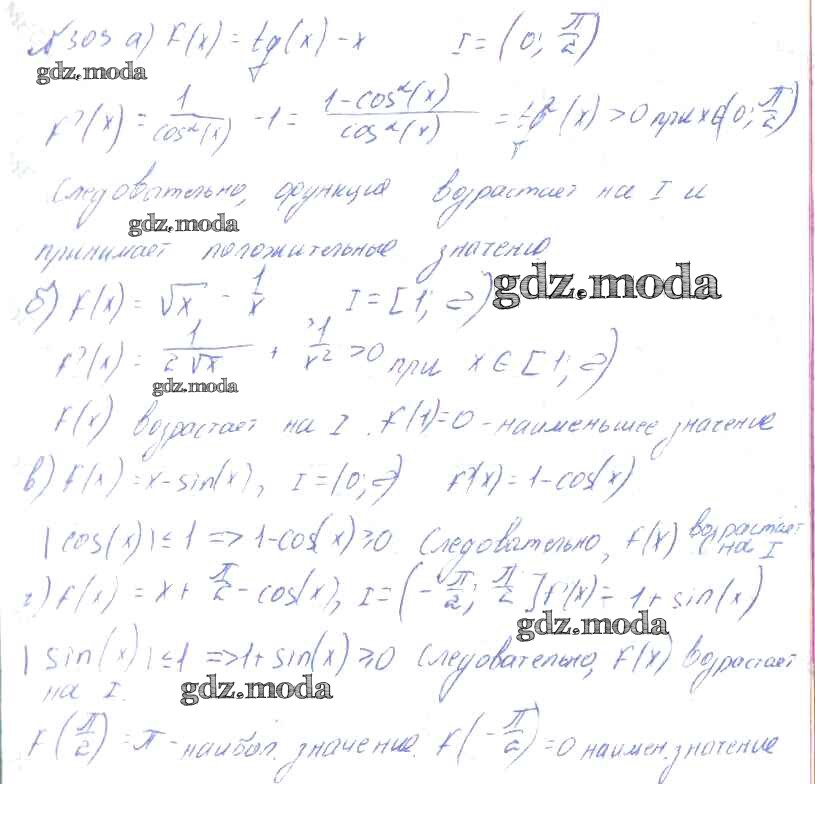 № 303 а) f(x) = tg(x) - x I = (0; π/2)
gdz.moda
f'(x) = 1/cos²(x) - 1 = (1-cos²(x))/cos²(x) = tg²(x) > 0 при x∈(0; π/2)
Следовательно, функция возрастает на I и
gdz.moda
принимает положительные значения
gdz.moda
б) f(x) = √x - 1/x I = [1; ∞)
f'(x) = 1/(2√x) + 1/x² > 0 при x ∈ [1; ∞)
gdz.moda
f(x) возрастает на I. f(1)=0 - наименьшее значение
в) f(x) = x-sin(x), I = (0; ∞) f'(x) = 1-cos(x)
|cos(x)| ≤ 1 => 1-cos(x) ≥ 0. Следовательно, f(x) возрастает на I
г) f(x) = x + π/2 - cos(x), I = (-π/2; π/2] f'(x) = 1 + sin(x)
gdz.moda
|sin(x)| ≤ 1 => 1+sin(x) ≥ 0 Следовательно, f(x) возрастает
на I.
gdz.moda
f(π/2) = π - наибол. значение. f(-π/2) = 0 наимен. значение